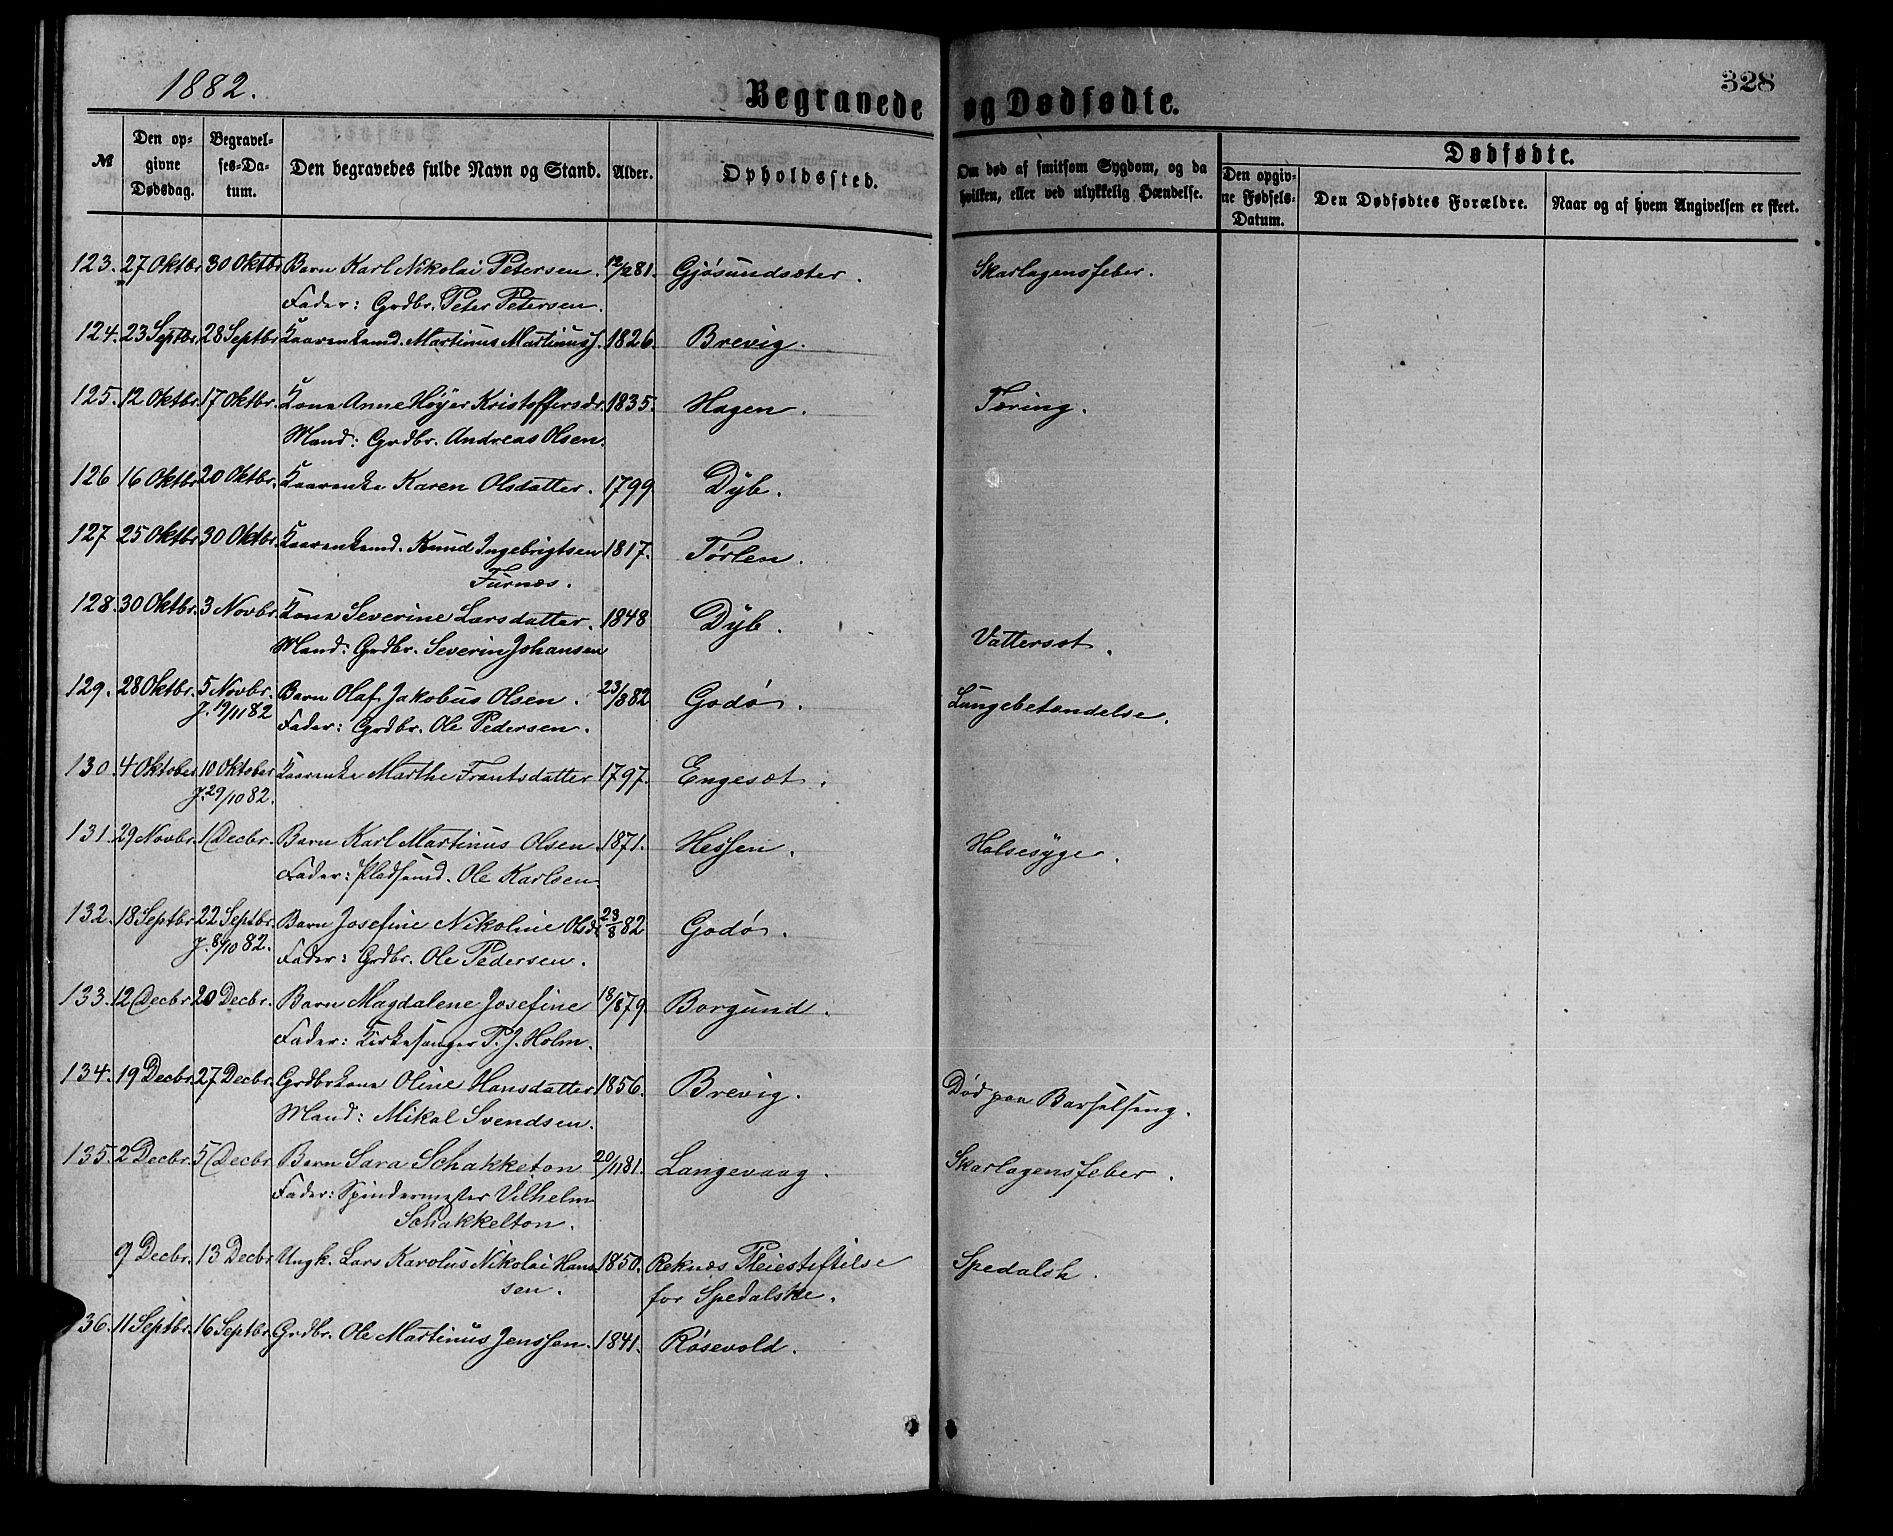 1882.
Begravede og Dødfødte.
328
№
Den op-
givne
Dødsdag.
Begravel-
ses-Da-
tum.
Den begravedes fulde Navn og Stand.
Alder.
Opholdssted.
Om død af smitsom Sygdom, og da
hvilken, eller ved ulykkelig Hændelse.
Dødfødte.
Den opgiv-
ne Fødsels-
Datum.
Den Dødfødtes Forældre.
Naar og af hvem Angivelsen er skeet.
123. 27 Oktbr 30 Oktbr Barn Karl Nikolai Petersen. 12/12 81. Gjøsundsæter. Skarlagensfeber.
Fader: Grdbr. Peter Petersen.
124. 23 Septbr. 28 Septbr Kaarenkemd. Martinus Martinuss. 1826. Brevig.
125. 12 Oktbr. 17 Oktbr. Kone Anne Høyer Kristoffersdr. 1835. Hagen. Tæring.
Mand: Grdbr. Andreas Olsen.
126 16 Oktbr. 20 Oktbr. Kaarenke Karen Olsdatter. 1799 Dyb.
127 25 Oktbr. 30 Oktbr. Kaarenkemd. Knud Ingebrigtsen 1817. Tørlen.
Furnæs.
128. 30 Oktbr. 3 Novbr. Kone Severine Larsdatter. 1848 Dyb.
Mand: Grdbr. Severin Johansen Vattersot.
129. 28 Oktbr. 5 Novbr. Barn Olaf Jakobus Olsen. 23/8 82 Godø. Lungebetændelse.
J. 19/11 82 Fader: Grdbr. Ole Pedersen.
130. 4 Oktober 10 Oktober Kaarenke Marthe Frantsdatter 1797. Engesæt.
J. 29/10 82.
131. 29 Novbr. 1 Decbr. Barn Karl Martinus Olsen. 1871. Hessen. Halsesyge.
Fader: Pladsemd. Ole Karlsen.
132. 18 Septbr. 22 Septbr. Barn Josefine Nikoline Olsdr 23/8 82 Godø.
J. 8/10 82. Fader: Grdbr. Ole Pedersen.
133. 12 Decbr. 20 Decbr. Barn Magdalene Josefine 18/8 79. Borgund.
Fader: Kirkesanger P. J. Holm.
134. 19 Decbr. 27 Decbr. Grdbrkone Oline Hansdatter 1856. Brevig. Død paa Barselseng.
Mand: Mikal Svendsen.
135. 2 Decbr. 5 Decbr Barn Sara Schakketon 20/11 81. Langevaag. Skarlagensfeber.
Fader: Spindermester Vilhelm
Schakkelton.
9 Decbr. 13 Decbr Ungk. Lars Karolus Nikolai Han- 1850. Reknæs Pleiestiftelse Spedalsk.
sen. for Spedalske.
36. 11 Septbr. 16 Septbr. Grdbr. Ole Martinus Jenssen. 1841. Røsevold.